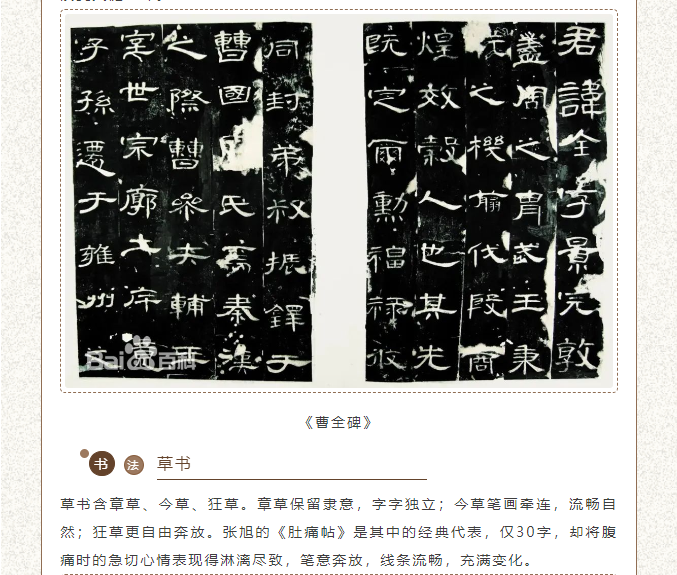 君諱全字景完敦
盖周之胄武王秉
之機翦伐殷商
煌效穀人也其先
既定爾勳福祿攸
同封弟叔振鐸于
曹國氏焉秦漢
之際曹參夾輔王
室世宗廓土斥竟
子孫遷于雍州
Bai百科
《曹全碑》
书法 草书
草书含章草、今草、狂草。章草保留隶意，字字独立；今草笔画牵连，流畅自
然；狂草更自由奔放。张旭的《肚痛帖》是其中的经典代表，仅30字，却将腹
痛时的急切心情表现得淋漓尽致，笔意奔放，线条流畅，充满变化。